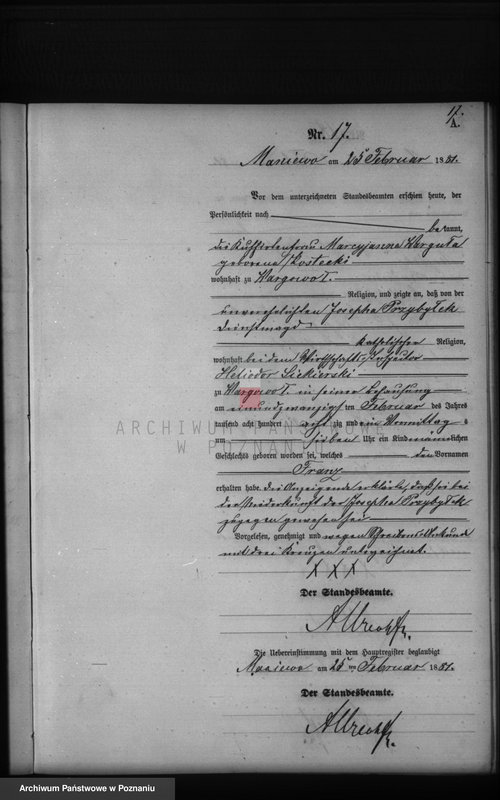 17.
A.
Nr. 17.
Maniewo am 25 Februar 1881.
Vor dem unterzeichneten Standesbeamten erschien heute, der
Persönlichkeit nach
bekannt,
die Marcyanna Warguła
geborene Kostecki
wohnhaft zu Wargowo
Religion, und zeigte an, daß von der
unverehelichten Josepha Przybyłek
Dienstmagd
katholischer Religion,
wohnhaft bei dem Wirthschafts Inspector
Heliodor Siekierski
zu Wargowo in seiner Behausung
am einundzwanzigsten Februar des Jahres
tausend acht hundert achtzig und ein Vormittags
um sieben Uhr ein Kind männlichen
Geschlechts geboren worden sei, welches den Vornamen
Franz
erhalten habe. Die Anzeigende erklärte, daß sie bei
der Niederkunft der Josepha Przybyłek
zugegen gewesen sei
Vorgelesen, genehmigt und wegen Schreibens Unkunde
mit drei Kreuzen unterzeichnet.
X X X
Der Standesbeamte.
Albrecht
Die Uebereinstimmung mit dem Hauptregister beglaubigt
Maniewo am 25 ten Februar 1881.
Der Standesbeamte.
Albrecht
ARCHIWUM PAŃSTWOWE
W POZNANIU
Archiwum Państwowe w Poznaniu